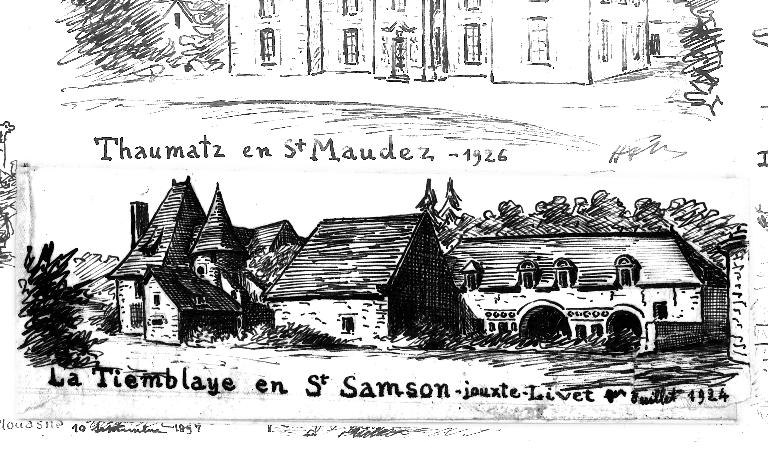 Thaumatz en St Maudez - 1926
La Tiemblaye en St Samson-jouxte-Livet 1er Juillet 1924
10 Septembre 1897